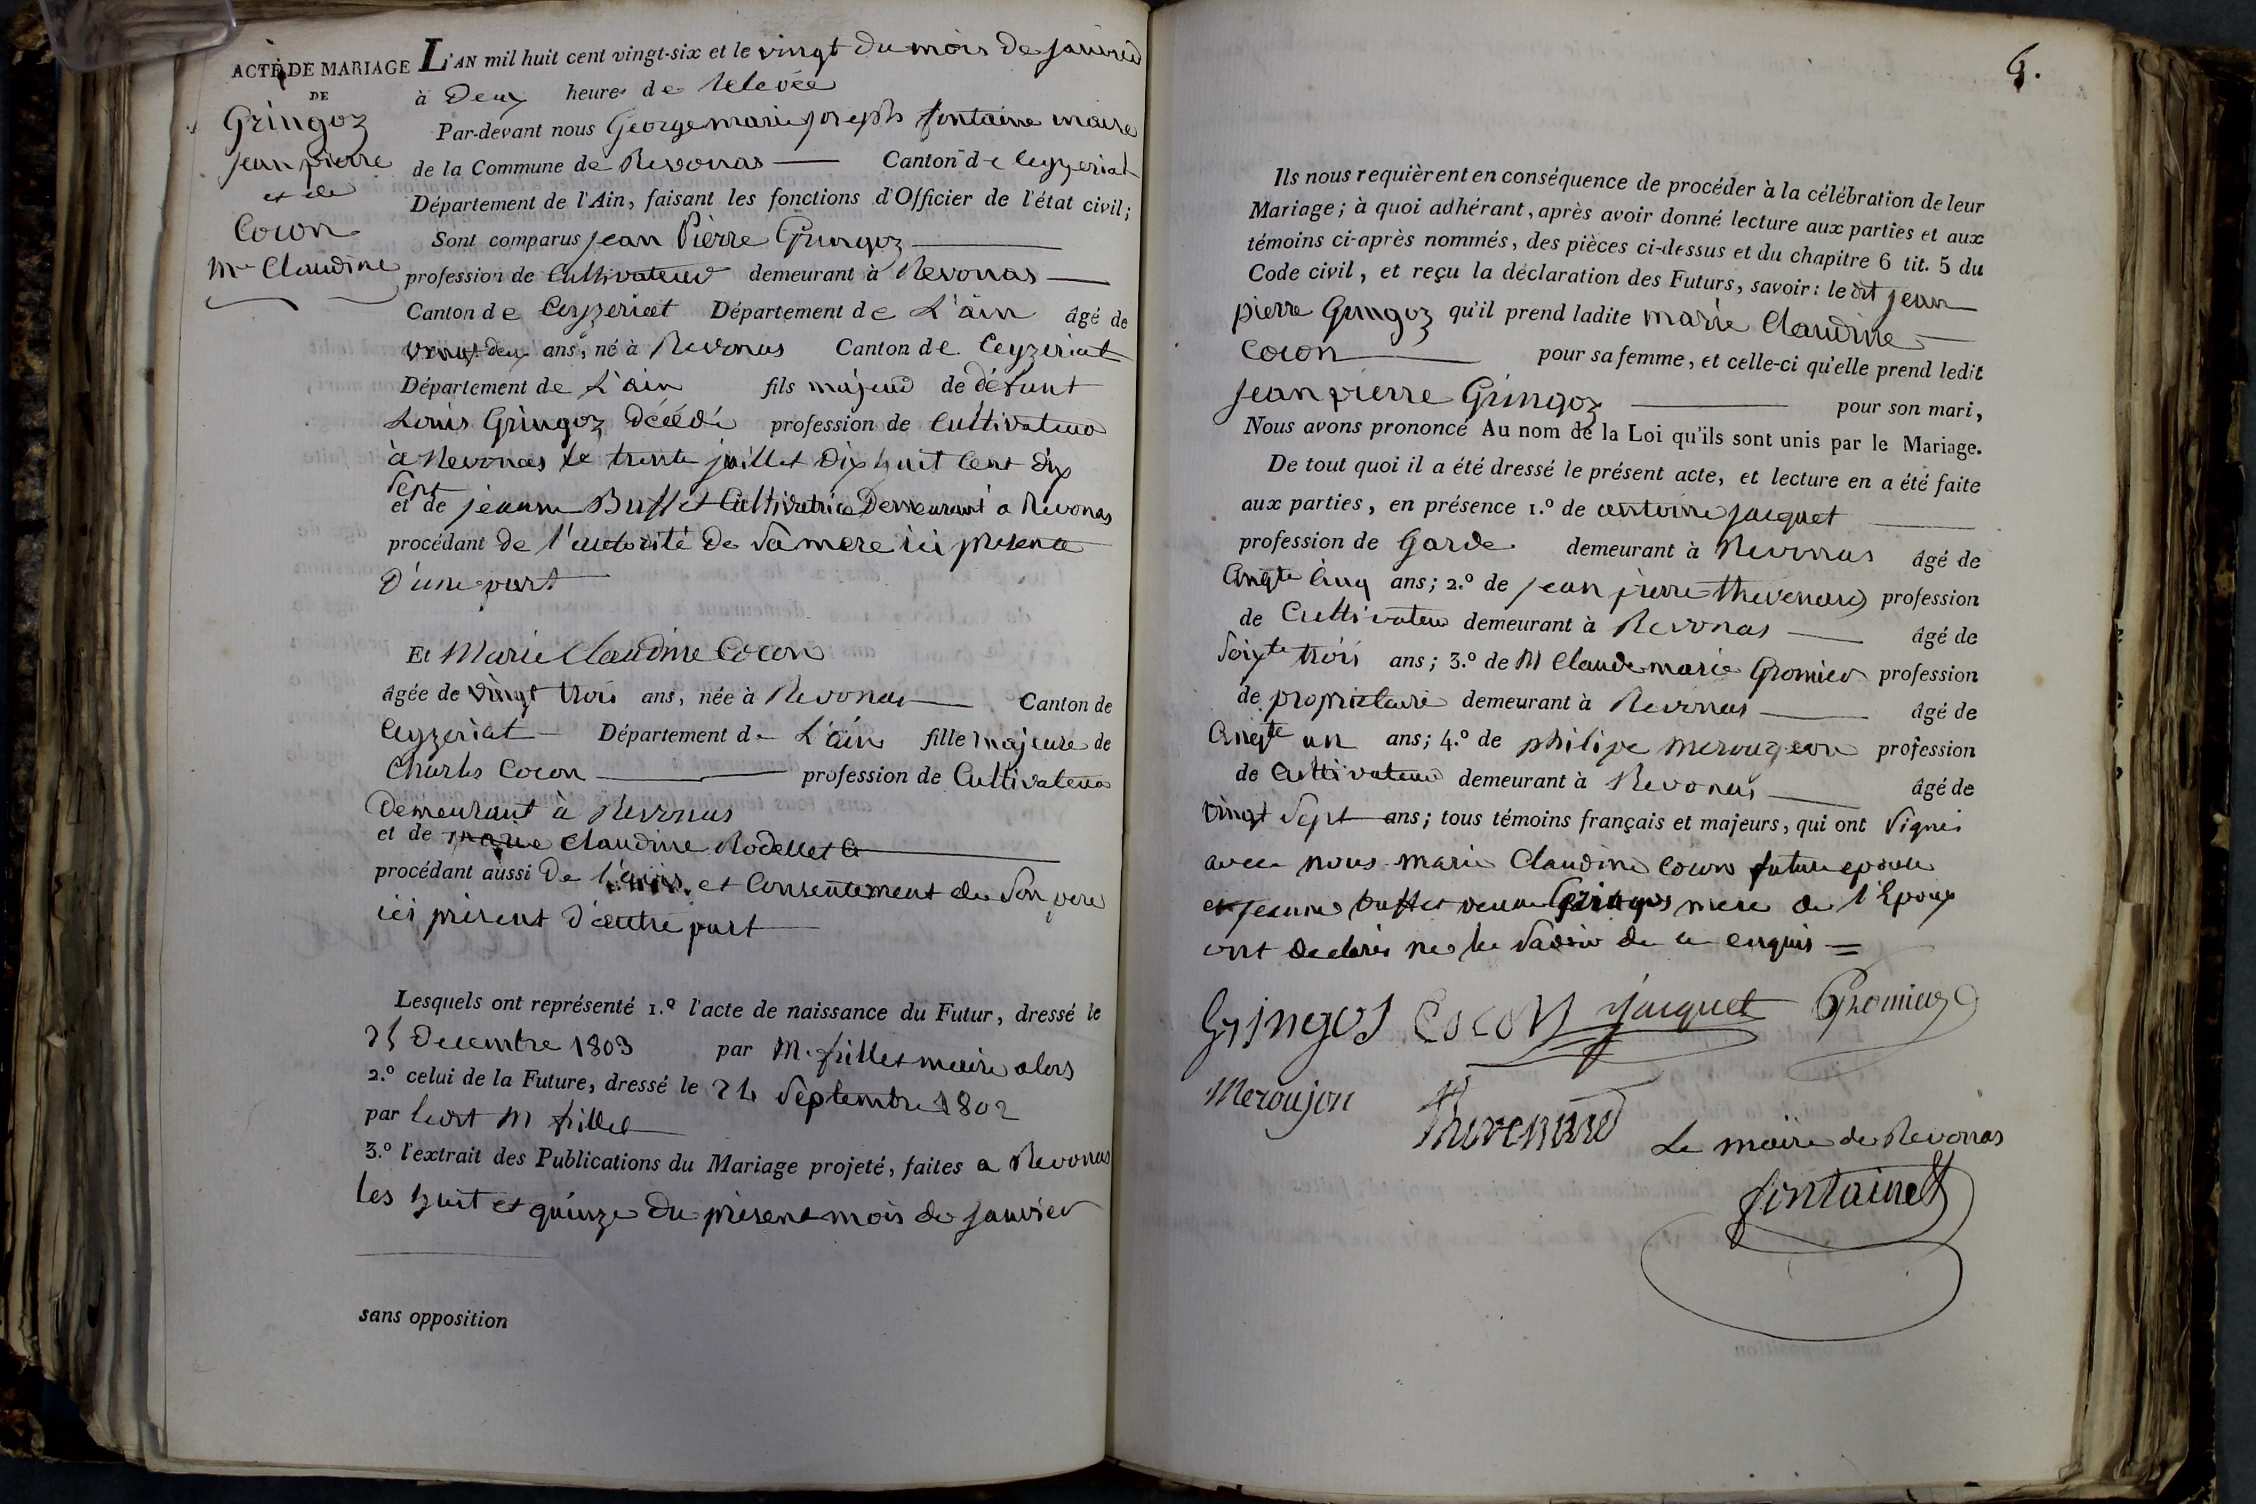 ACTE DE MARIAGE
DE
Gringoz
jean pierre
et de
Cocon
Mie Claudine
L'AN mil huit cent vingt-six et le vingt du mois de janvier
à Deux heures de Relevée
Par-devant nous George marie joseph fontaine maire
de la Commune de Revonas — Canton de Ceyzeriat
Département de l'Ain, faisant les fonctions d'Officier de l'état civil;
Sont comparus jean Pierre Gringoz
profession de Cultivateur demeurant à Revonas
Canton de Ceyzeriat Département de L'ain âgé de
vingt deux ans, né à Revonas Canton de Ceyzeriat
Département de L'ain fils majeur de défunt
Louis Gringoz décédé profession de Cultivateur
à Revonas le trente juillet dix huit cent dix
sept
et de jeanne Buffet Cultivatrice Demeurant a Revonas
procédant de l'autorité de sa mere ici presente
D'une part
Et Marie Claudine Cocon
âgée de vingt trois ans, née à Revonas Canton de
Ceyzeriat Département de L'ain fille majeure de
Charles Cocon profession de Cultivateur
Demeurant à Revonas
et de marie Claudine Rodellet
procédant aussi De l'avis et Consentement de son pere
ici présent d'autre part
Lesquels ont représenté 1.º l'acte de naissance du Futur, dressé le
25 Decembre 1803 par M. fillet maire alors
2.º celui de la Future, dressé le 24 Septembre 1802
par ledt M fillet
3.º l'extrait des Publications du Mariage projeté, faites a Revonas
les huit et quinze du present mois de janvier
sans opposition
Ils nous requièrent en conséquence de procéder à la célébration de leur
Mariage; à quoi adhérant, après avoir donné lecture aux parties et aux
témoins ci-après nommés, des pièces ci-dessus et du chapitre 6 tit. 5 du
Code civil, et reçu la déclaration des Futurs, savoir: le dit jean
pierre Gringoz qu'il prend ladite marie Claudine
Cocon pour sa femme, et celle-ci qu'elle prend ledit
jean pierre Gringoz pour son mari,
Nous avons prononcé Au nom de la Loi qu'ils sont unis par le Mariage.
De tout quoi il a été dressé le présent acte, et lecture en a été faite
aux parties, en présence 1.º de antoine jacquet
profession de Garde demeurant à Revonas âgé de
Cinqte Cinq ans; 2.º de jean pierre thevenard profession
de Cultivateur demeurant à Revonas âgé de
Soixte trois ans; 3.º de M Claude marie Gromier profession
de propriétaire demeurant à Revonas âgé de
Cinqte un ans; 4.º de philipe merougeon profession
de Cultivateur demeurant à Revonas âgé de
vingt Sept ans; tous témoins français et majeurs, qui ont signé
avec nous marie Claudine Cocon future epouse
et jeanne buffet veuve Gringos mere de l'Epoux
ont declaré ne le savoir de ce enquis =
Gringos Cocon jacquet Gromier
Meroujon Thevenard Le maire de Revonas
fontaine